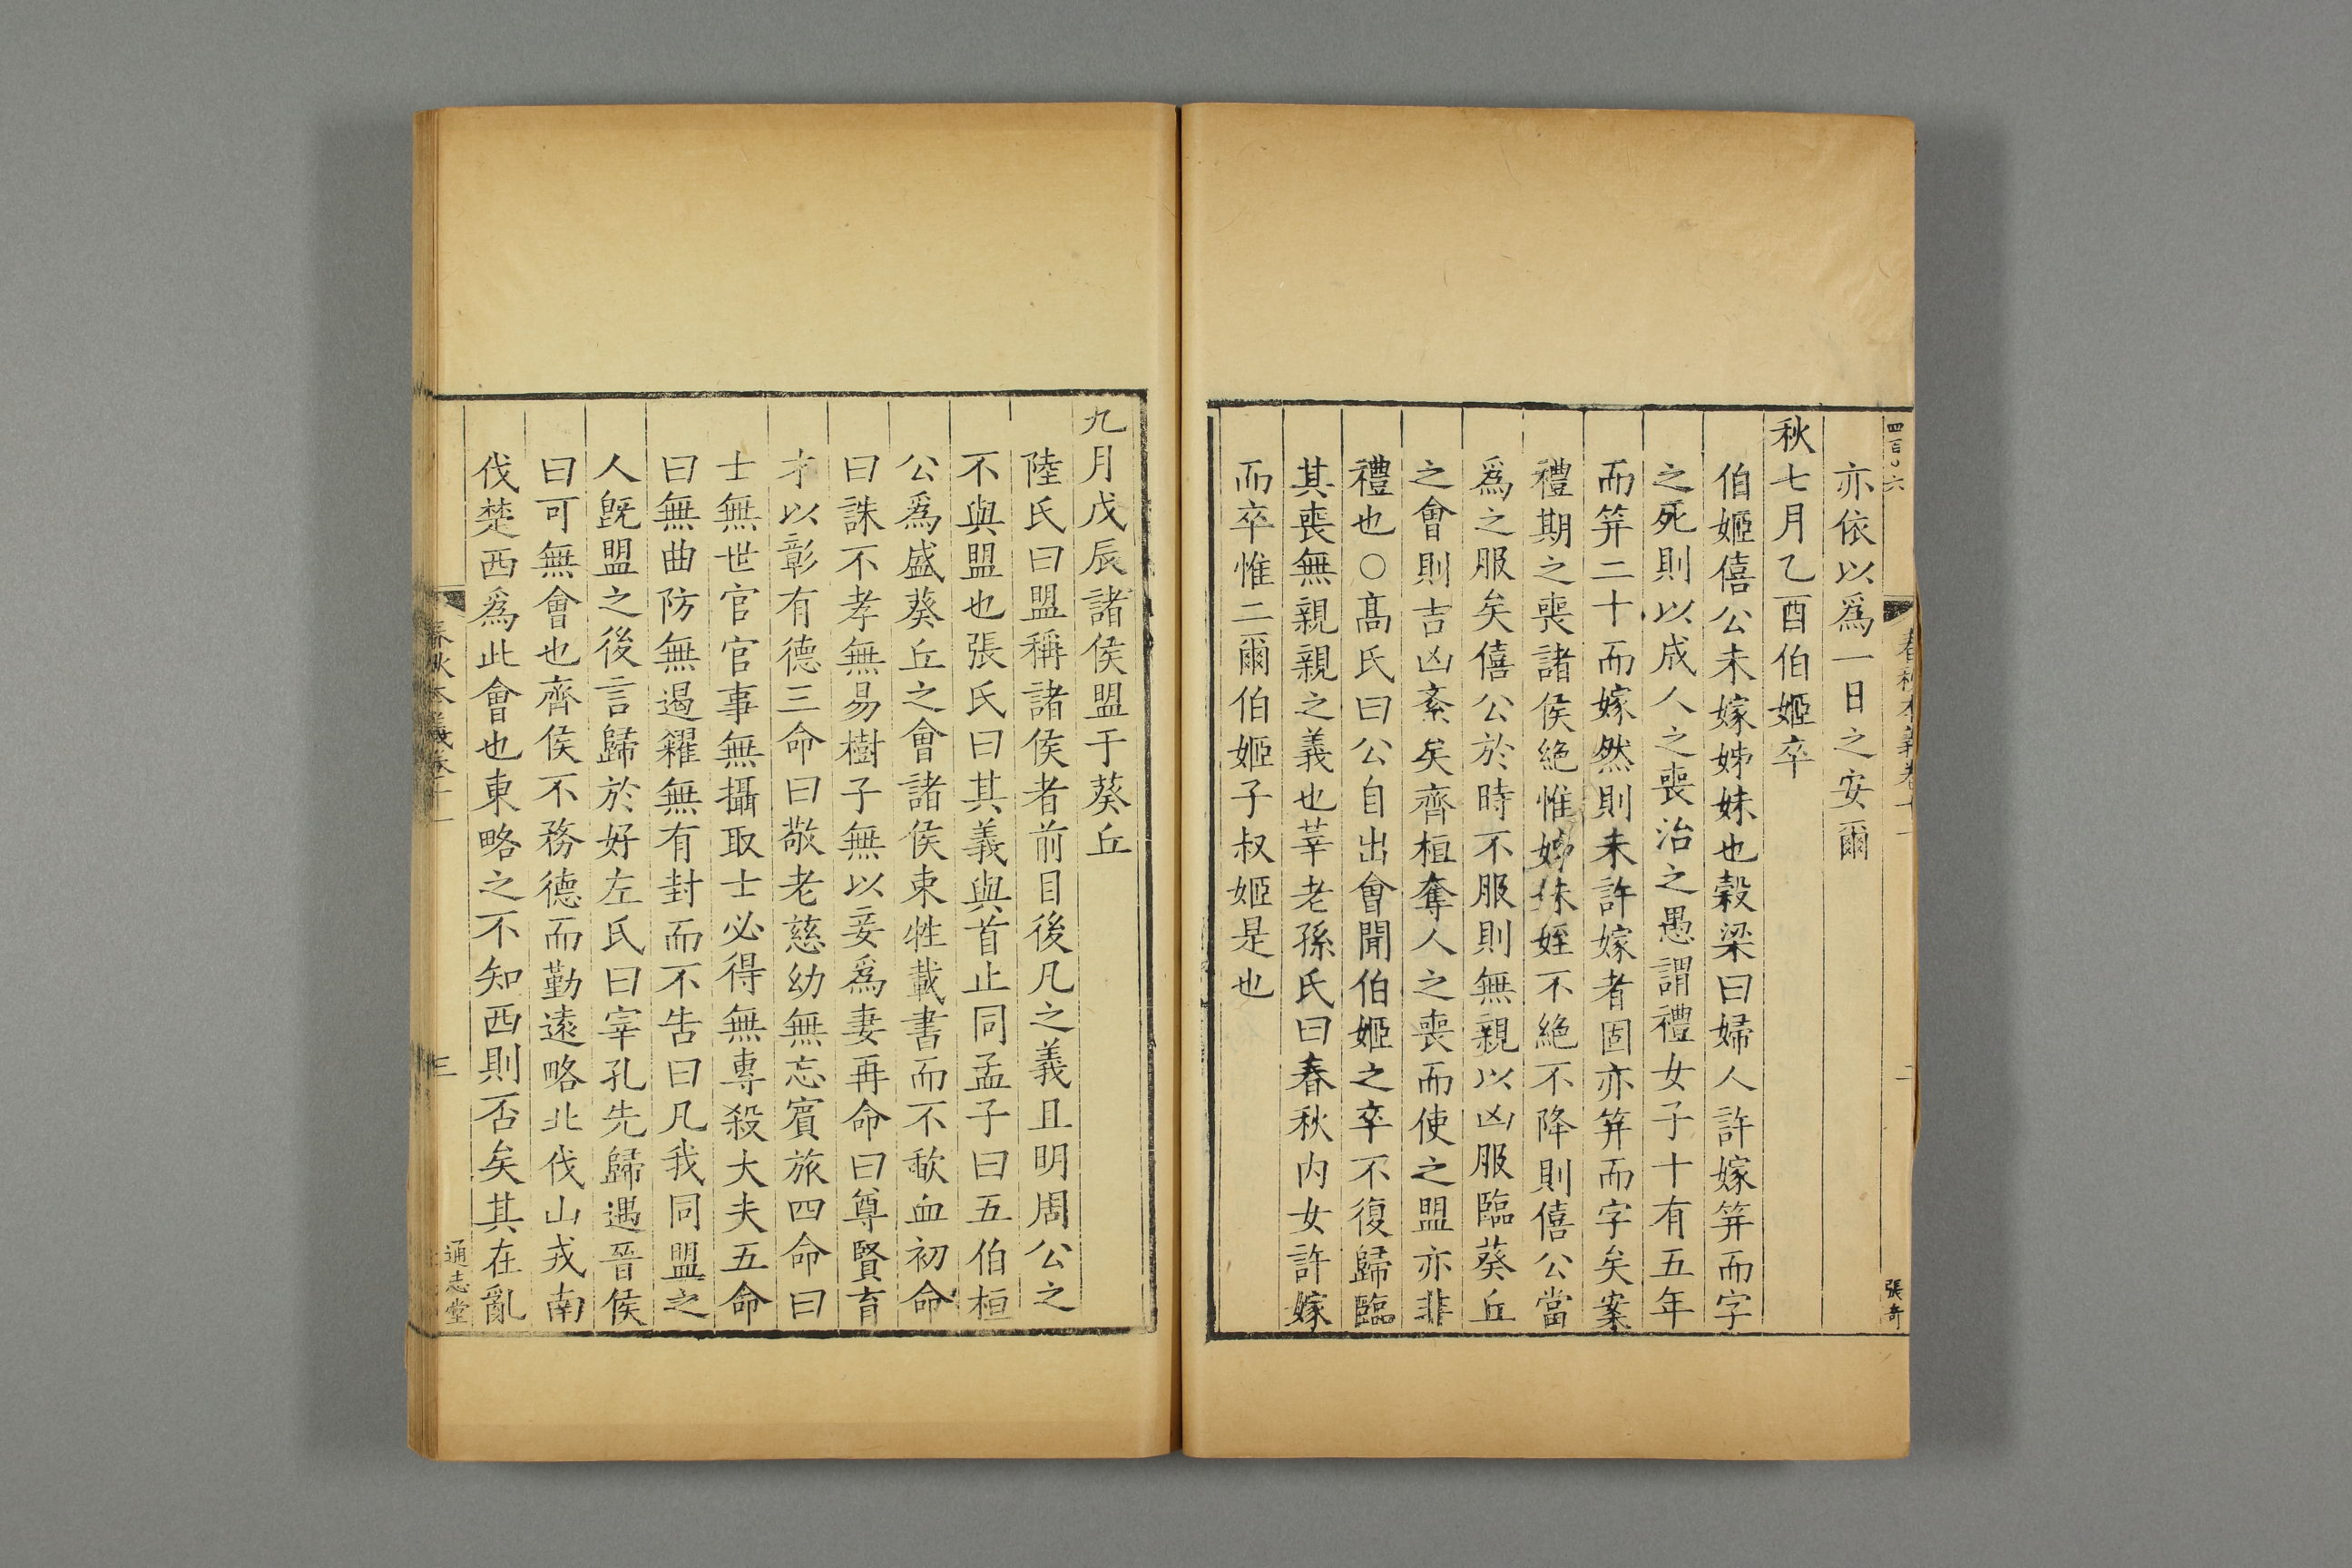 四百〇六
春秋本義卷十一
二
張奇
亦依以爲一日之安爾
秋七月乙酉伯姬卒
伯姬僖公未嫁姊妹也穀梁曰婦人許嫁笄而字
之死則以成人之喪治之愚謂禮女子十有五年
而笄二十而嫁然則未許嫁者固亦笄而字矣案
禮期之喪諸侯絶惟姊妹姪不絶不降則僖公當
爲之服矣僖公於時不服則無親以凶服臨葵丘
之會則吉凶紊矣齊桓奪人之喪而使之盟亦非
禮也○髙氏曰公自出會聞伯姬之卒不復歸臨
其喪無親親之義也莘老孫氏曰春秋内女許嫁
而卒惟二爾伯姬子叔姬是也
九月戊辰諸侯盟于葵丘
陸氏曰盟稱諸侯者前目後凡之義且明周公之
不與盟也張氏曰其義與首止同孟子曰五伯桓
公爲盛葵丘之會諸侯束牲載書而不歃血初命
曰誅不孝無易樹子無以妾爲妻再命曰尊賢育
才以彰有德三命曰敬老慈幼無忘賓旅四命曰
士無世官官事無攝取士必得無專殺大夫五命
曰無曲防無遏糴無有封而不告曰凡我同盟之
人旣盟之後言歸於好左氏曰宰孔先歸遇晉侯
曰可無會也齊侯不務德而勤遠略北伐山戎南
伐楚西爲此會也東略之不知西則否矣其在亂
春秋本義卷十一
三
通志堂